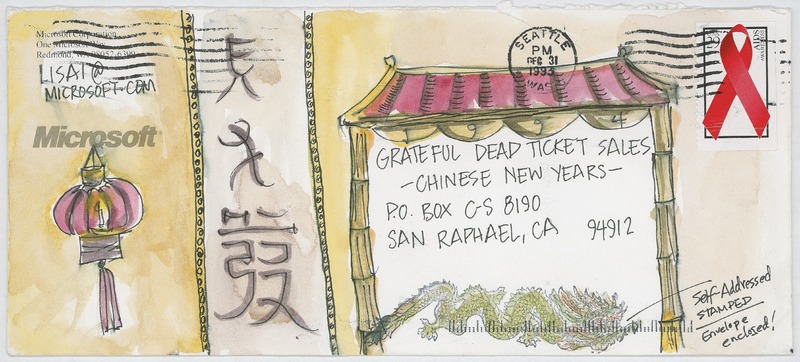 Microsoft Corporation
One Microsoft Way
Redmond, WA 98052-6399
LISAT@
MICROSOFT.COM
Microsoft
發
SEATTLE
PM
DEC 31
1993
WASH
1 9 9 4
GRATEFUL DEAD TICKET SALES
-CHINESE NEW YEARS-
P.O. BOX C-S 8190
SAN RAPHAEL, CA 94912
Self-Addressed
STAMPED
Envelope
enclosed!